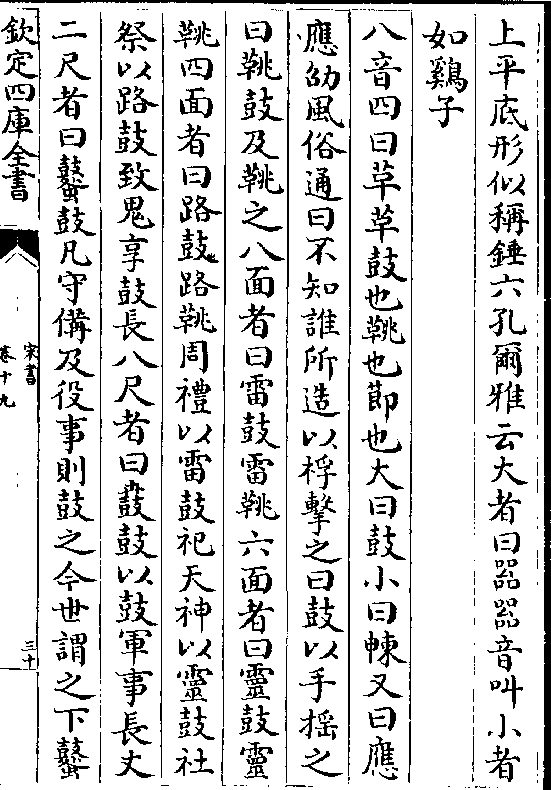 上平底形似稱錘六孔爾雅云大者曰嘂嘂音叫小者
如鷄子
八音四曰革革鼓也鞉也節也大曰鼓小曰朄又曰應
應劭風俗通曰不知誰所造以桴擊之曰鼓以手摇之
曰鞉鼓及鞉之八面者曰雷鼓雷鞉六面者曰靈鼓靈
鞉四面者曰路鼓路鞉周禮以雷鼓祀天神以靈鼓社
祭以路鼓致鬼享鼓長八尺者曰鼖鼓以鼓軍事長丈
二尺者曰鼛鼓凡守備及役事則鼓之今世謂之下鼛
欽定四庫全書
宋書
卷十九
三十